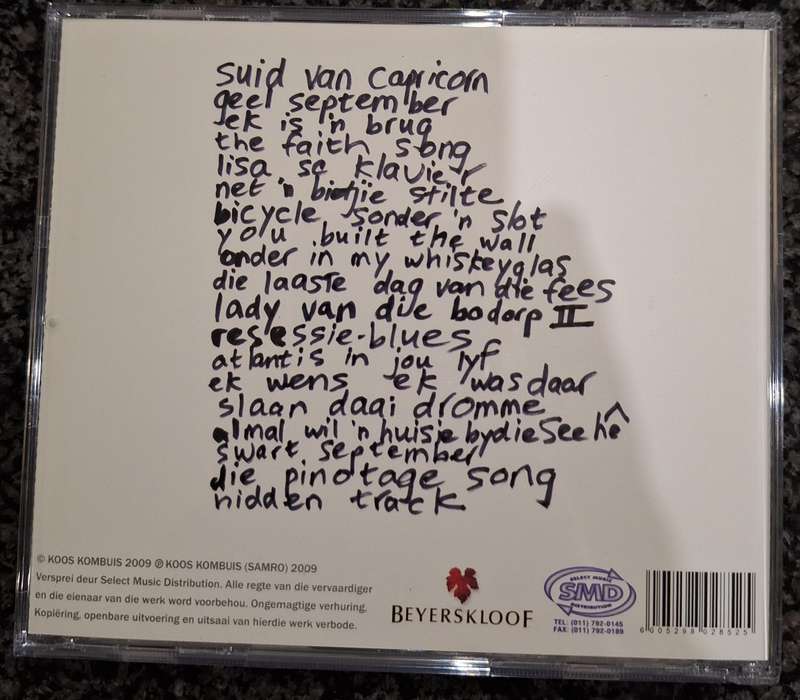 suid van capricorn
geel september
ek is 'n brug
the faith song
lisa se klavier
net 'n bietjie stilte
bicycle sonder 'n slot
you built the wall
onder in my whiskeyglas
die laaste dag van die fees
lady van die bodorp II
resessie-blues
atlantis in jou lyf
ek wens ek was daar
slaan daai dromme
almal wil 'n huisie by die see hê
swart september
die pinotage song
hidden track
© KOOS KOMBUIS 2009 ℗ KOOS KOMBUIS (SAMRO) 2009
Versprei deur Select Music Distribution. Alle regte van die vervaardiger
en die eienaar van die werk word voorbehou. Ongemagtige verhuring.
Kopiëring, openbare uitvoering en uitsaai van hierdie werk verbode.
BEYERSKLOOF
SELECT MUSIC
SMD
DISTRIBUTION
TEL: (011) 792-0145
FAX: (011) 792-0189
6 005299 028525